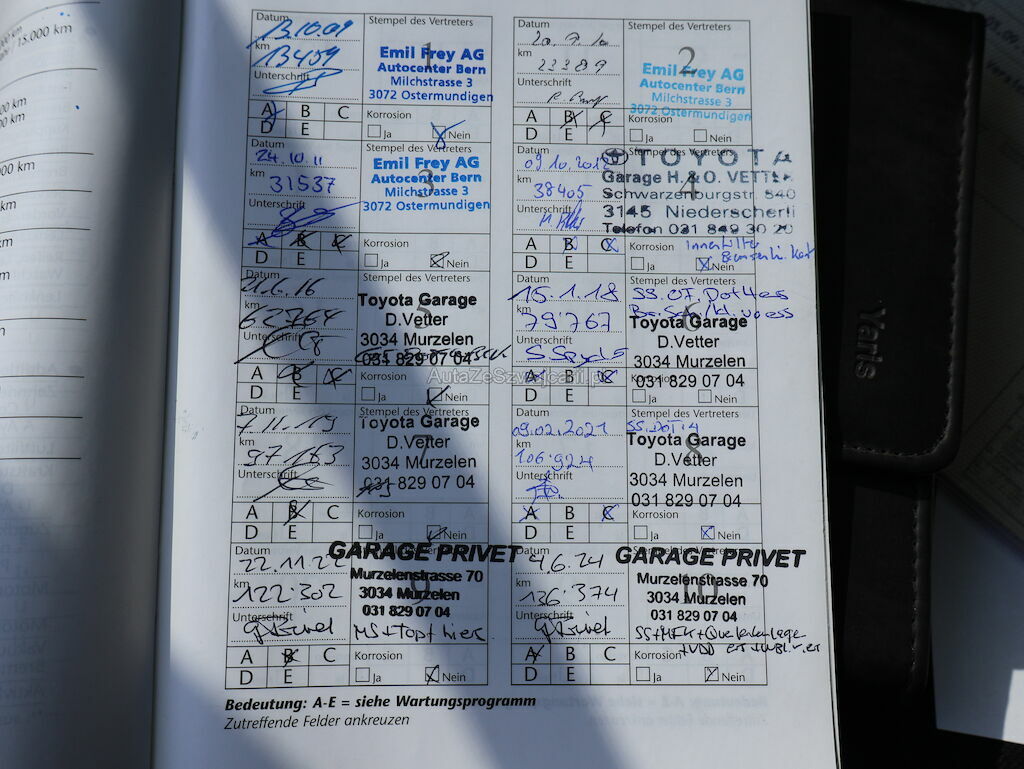 15.000 km
000 km
km
Datum
13.10.09
km
13459
Unterschrift
Stempel des Vertreters
1
Emil Frey AG
Autocenter Bern
Milchstrasse 3
3072 Ostermundigen
A B C
D E
Korrosion
Ja Nein
Datum
20.9.10
km
22389
Unterschrift
Stempel des Vertreters
2
Emil Frey AG
Autocenter Bern
Milchstrasse 3
3072 Ostermundigen
A B C
D E
Korrosion
Ja Nein
Datum
24.10.11
km
31537
Unterschrift
Stempel des Vertreters
3
Emil Frey AG
Autocenter Bern
Milchstrasse 3
3072 Ostermundigen
A B C
D E
Korrosion
Ja Nein
Datum
09.10.2012
km
38405
Unterschrift
Stempel des Vertreters
4
TOYOTA
Garage H. & O. VETTER
Schwarzenburgstr. 840
3145 Niederscherli
Telefon 031 849 30 20
A B C
D E
Korrosion
Ja Nein
Datum
km
62764
Unterschrift
Stempel des Vertreters
5
Toyota Garage
D.Vetter
3034 Murzelen
031 829 07 04
A B C
D E
Korrosion
Ja Nein
Datum
15.1.18
km
79767
Unterschrift
6
Toyota Garage
D.Vetter
3034 Murzelen
031 829 07 04
A B C
D E
Ja Nein
AutaZeSzwajcarii.pl
Datum
7.11.19
km
97183
Unterschrift
Stempel des Vertreters
7
Toyota Garage
D.Vetter
3034 Murzelen
031 829 07 04
A B C
D E
Korrosion
Ja Nein
Datum
09.02.2021
km
106.924
Unterschrift
Stempel des Vertreters
SS.DOT4
8
Toyota Garage
D.Vetter
3034 Murzelen
031 829 07 04
A B C
D E
Korrosion
Ja Nein
Datum
22.11.22
km
122.302
Unterschrift
GARAGE PRIVET
Murzelenstrasse 70
3034 Murzelen
031 829 07 04
A B C
D E
Korrosion
Ja Nein
Datum
4.6.24
km
136.374
Unterschrift
GARAGE PRIVET
Murzelenstrasse 70
3034 Murzelen
031 829 07 04
A B C
D E
Korrosion
Ja Nein
Bedeutung: A-E = siehe Wartungsprogramm
Zutreffende Felder ankreuzen
Yaris